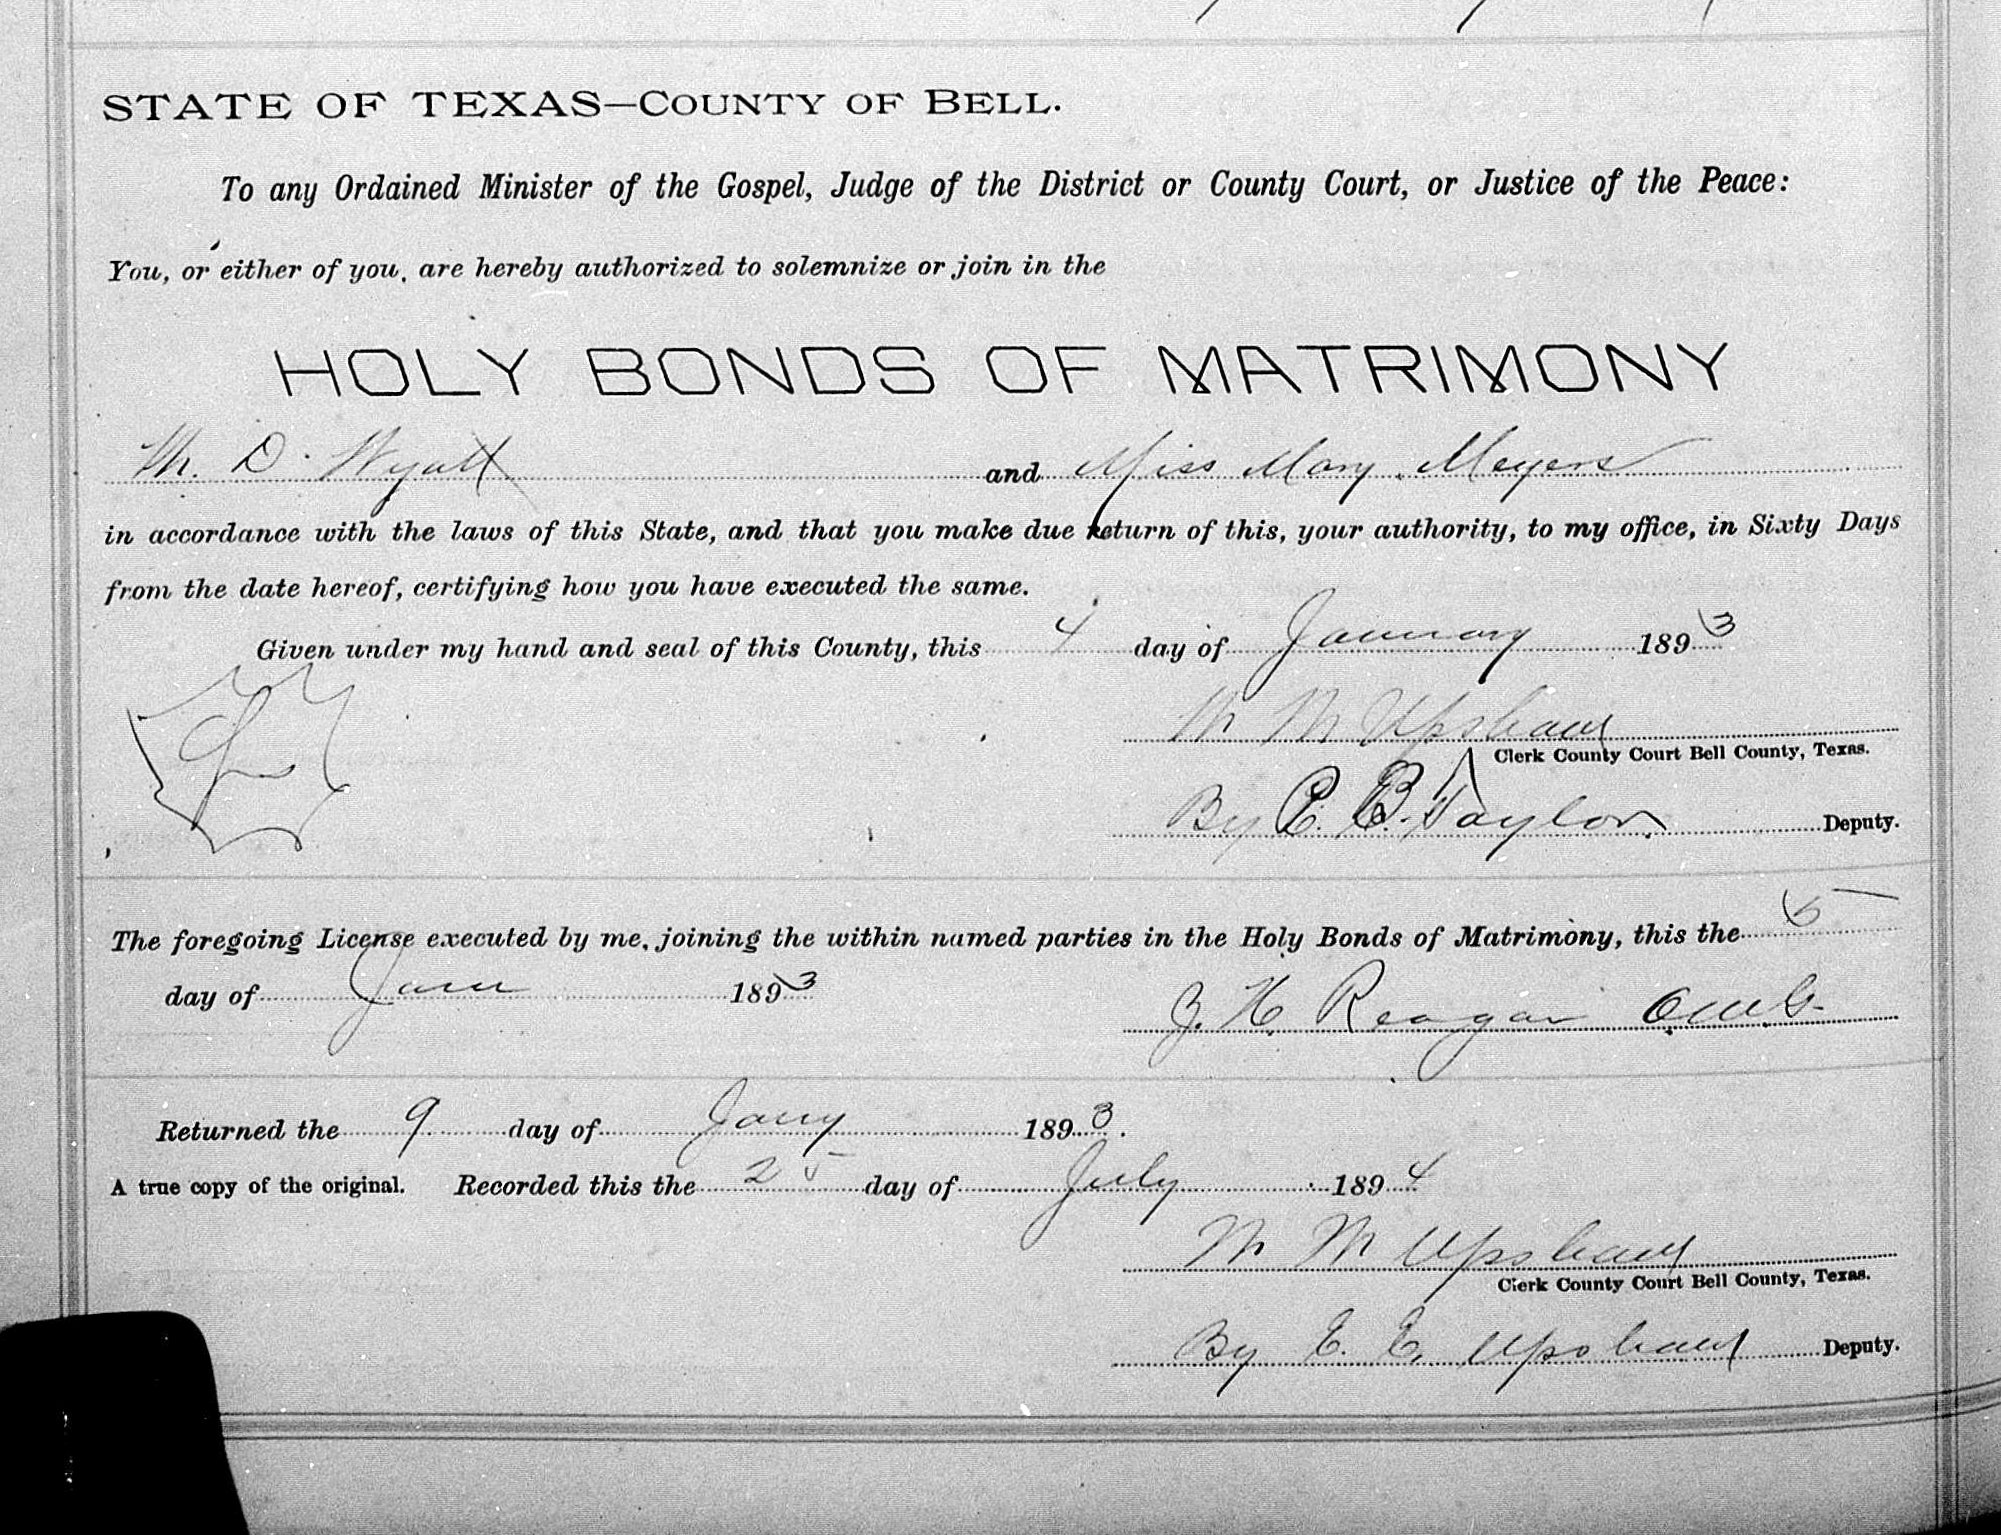 STATE OF TEXAS—COUNTY OF BELL.
To any Ordained Minister of the Gospel, Judge of the District or County Court, or Justice of the Peace:
You, or either of you, are hereby authorized to solemnize or join in the
HOLY BONDS OF MATRIMONY
M. D. Wyatt and Miss Mary Meyers
in accordance with the laws of this State, and that you make due return of this, your authority, to my office, in Sixty Days
from the date hereof, certifying how you have executed the same.
Given under my hand and seal of this County, this 4 day of January 1893
M M Upshaw
Clerk County Court Bell County, Texas.
By E. B. Taylor Deputy.
The foregoing License executed by me, joining the within named parties in the Holy Bonds of Matrimony, this the 5
day of Jany 1893
J. H. Reagan O.M.G.
Returned the 9 day of Jany 1893.
A true copy of the original. Recorded this the 25 day of July 1894
M M Upshaw
Clerk County Court Bell County, Texas.
By E. E. Upshaw Deputy.